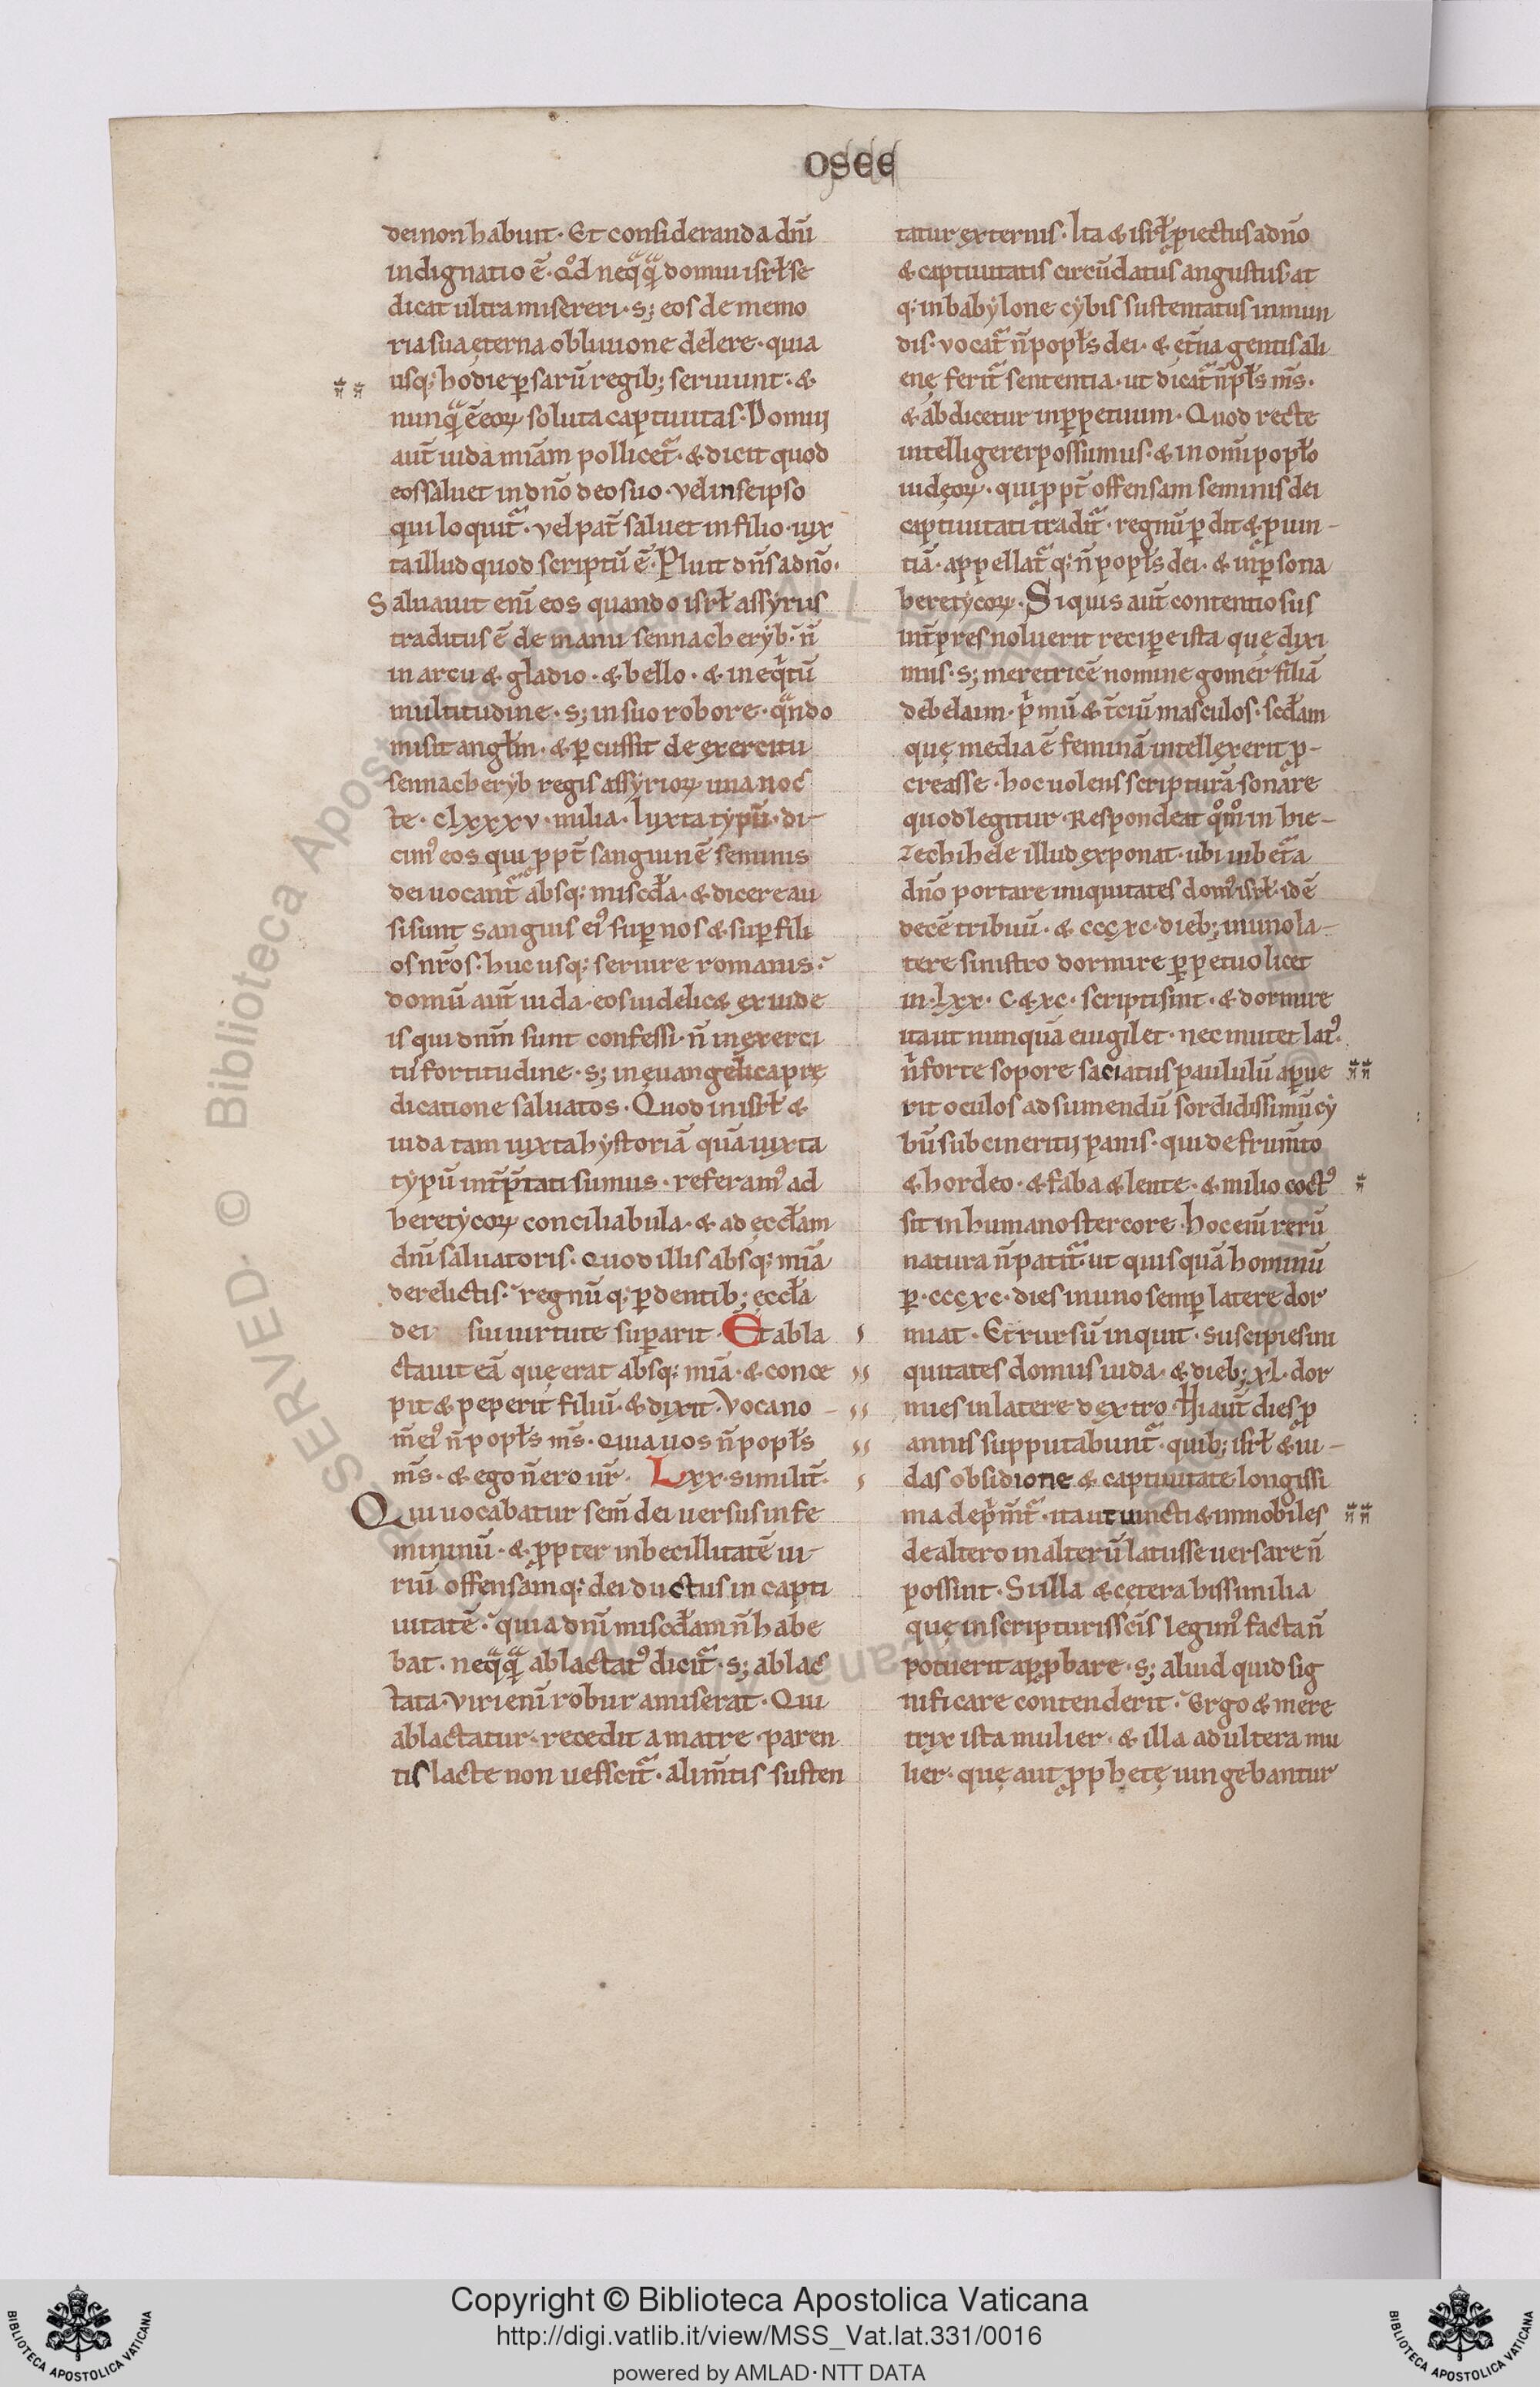 OSEE
dei non habuit· Et consideranda dñi
indignatio ē· qd̊ neq̄q̄ domui isrł se
dicat ultra misereri· s; eos de memo
ria sua ęterna obliuione delere· quia
usq; hodie ꝑsarū regib; seruiunt· &
nunq̄ ē eoꝝ soluta captiuitas· Domui
aut̄ iuda miam̄ pollicet᷑· & dicit quod
eos saluet in dn̄o deo suo· vel in seipso
qui loquit᷑· vel pat̄ saluet in filio· iux
ta illud quod scriptū ē· Pluit dn̄s a dn̄o·
Saluauit enī eos quando isrł assyriis
traditus ē de manu sennacheryb· n̄
in arcu & gladio· & bello· & in eqͥtū
multitudine· s; in suo robore· qᵃndo
misit angłm· & ꝑcussit de exercitu
sennacheryb regis assyrioꝝ una noc
te· clxxxv· milia· Iuxta typū· di-
cimꝰ eos qui ꝓpt̄ sanguinē seminis
dei uocant᷑ absq; miscd̄a· & dicere au
si sunt sanguis eiꝰ suꝑ nos & suꝑ fili
os nr̄os· huc usq; seruire romanis·
domū aut̄ iuda· eos uidelic& ex iude
is qui dnm̄ sunt confessi· n̄ in exerci
tu fortitudine· s; in ęuangelica prę
dicatione saluatos· Quod in isrł &
iuda tam iuxta hystoriā quā iuxta
typū int̄p̄tati sumus· referamꝰ ad
heretycoꝝ conciliabula· & ad ęccłam
dn̄i saluatoris· Quod illis absq; mīa
derelictis· regnū q; ꝑdentib; ęccła
dei sui uirtute suꝑarit· Et abla
ctauit eā quę erat absq; mīa· & conce
pit & peperit filiū· & dixit· Voca no
m̄ eiꝰ n̄ popłs ms̄· Quia uos n̄ popłs
ms̄· & ego n̄ ero ur̄· Lxx· similit̄·
Qui uocabatur sem̄ dei uersus in fe
mininū· & ꝓpter inbecillitatē ui-
riū offensamq; dei ductus in capti
uitatē· quia dn̄i miscd̄am n̄ habe
bat· neq̄q̄ ablactatꝰ dicit᷑· s; ablac
tata· Viri enī robur amiserat· Qui
ablactatur· recedit a matre· paren
tis lacte non uescit᷑· alim̄tis susten
tatur externis· Ita & isrł ꝓiectus a dn̄o
& captiuitatis circūdatus angustiis· at
q; in babylone cybis sustentatus inmun
dis· vocat᷑ n̄ popłs dei· & ęt̄na gentis ali
enę ferit᷑ sententia· ut dicat᷑ n̄ płs ms̄·
& abdicetur in ꝑpetuum· Quod recte
intelligere possumus· & in omī popło
iudęoꝝ· qui ꝓpt̄ offensam seminis dei
captiuitati tradit᷑· regnū ꝑdit & ꝓuin-
tiā· appellat᷑ q; n̄ popłs dei· & in ꝑsona
heretycoꝝ· Si quis aut̄ contentiosus
int̄pres noluerit reciꝑe ista quę dixi
mus· s; meretricē nomine gomer filiā
debelaim· pͥmū & t̄ciū masculos· scd̄am
quę media ē feminā intellexerit ꝓ-
creasse· hoc uolens scripturā sonare
quod legitur· Respondeat qͦmͦ in hie-
zechihele illud exponat· ubi iubet᷑ a
dn̄o portare iniquitates domꝰ isrł· idē
decē tribuū· & cccxc· dieb; in uno la-
tere sinistro dormire ꝑpetuo licet
in· lxx· c & xc· scripti sint· & dormire
ita ut nunquā euigilet· nec mutet latꝰ·
nͥ forte sopore saciatus paululū aꝑue
rit oculos ad sumendū sordidissimū cy
bū subcineritij panis· qui de frum̄to
& hordeo· & faba & lente· & milio coctꝰ
sit in humano stercore· hoc enī rerū
natura n̄ patit᷑· ut quisquā hominū
ꝑ· cccxc· dies in uno semꝑ latere dor
miat· Et rursū inquit· suscipies ini
quitates domus iuda· & dieb; xl· dor
mies in latere dextro· Hi aut̄ dies ꝓ
annis supputabunt᷑· quib; isrł & iu-
das obsidione & captiuitate longissi
ma depͥm̄t᷑· ita ut uincti & inmobiles
de altero in alterū latus se uersare n̄
possint· Si illa & cętera his similia
quę in scripturis scīs legimꝰ facta n̄
potuerit apꝓbare· s; aliud quid sig
nificare contenderit· Ergo & mere
trix ista mulier· & illa adultera mu
lier· quę aut ꝓphetę iungebantur
Copyright © Biblioteca Apostolica Vaticana
http://digi.vatlib.it/view/MSS_Vat.lat.331/0016
powered by AMLAD·NTT DATA
BIBLIOTECA APOSTOLICA VATICANA
BIBLIOTECA APOSTOLICA VATICANA